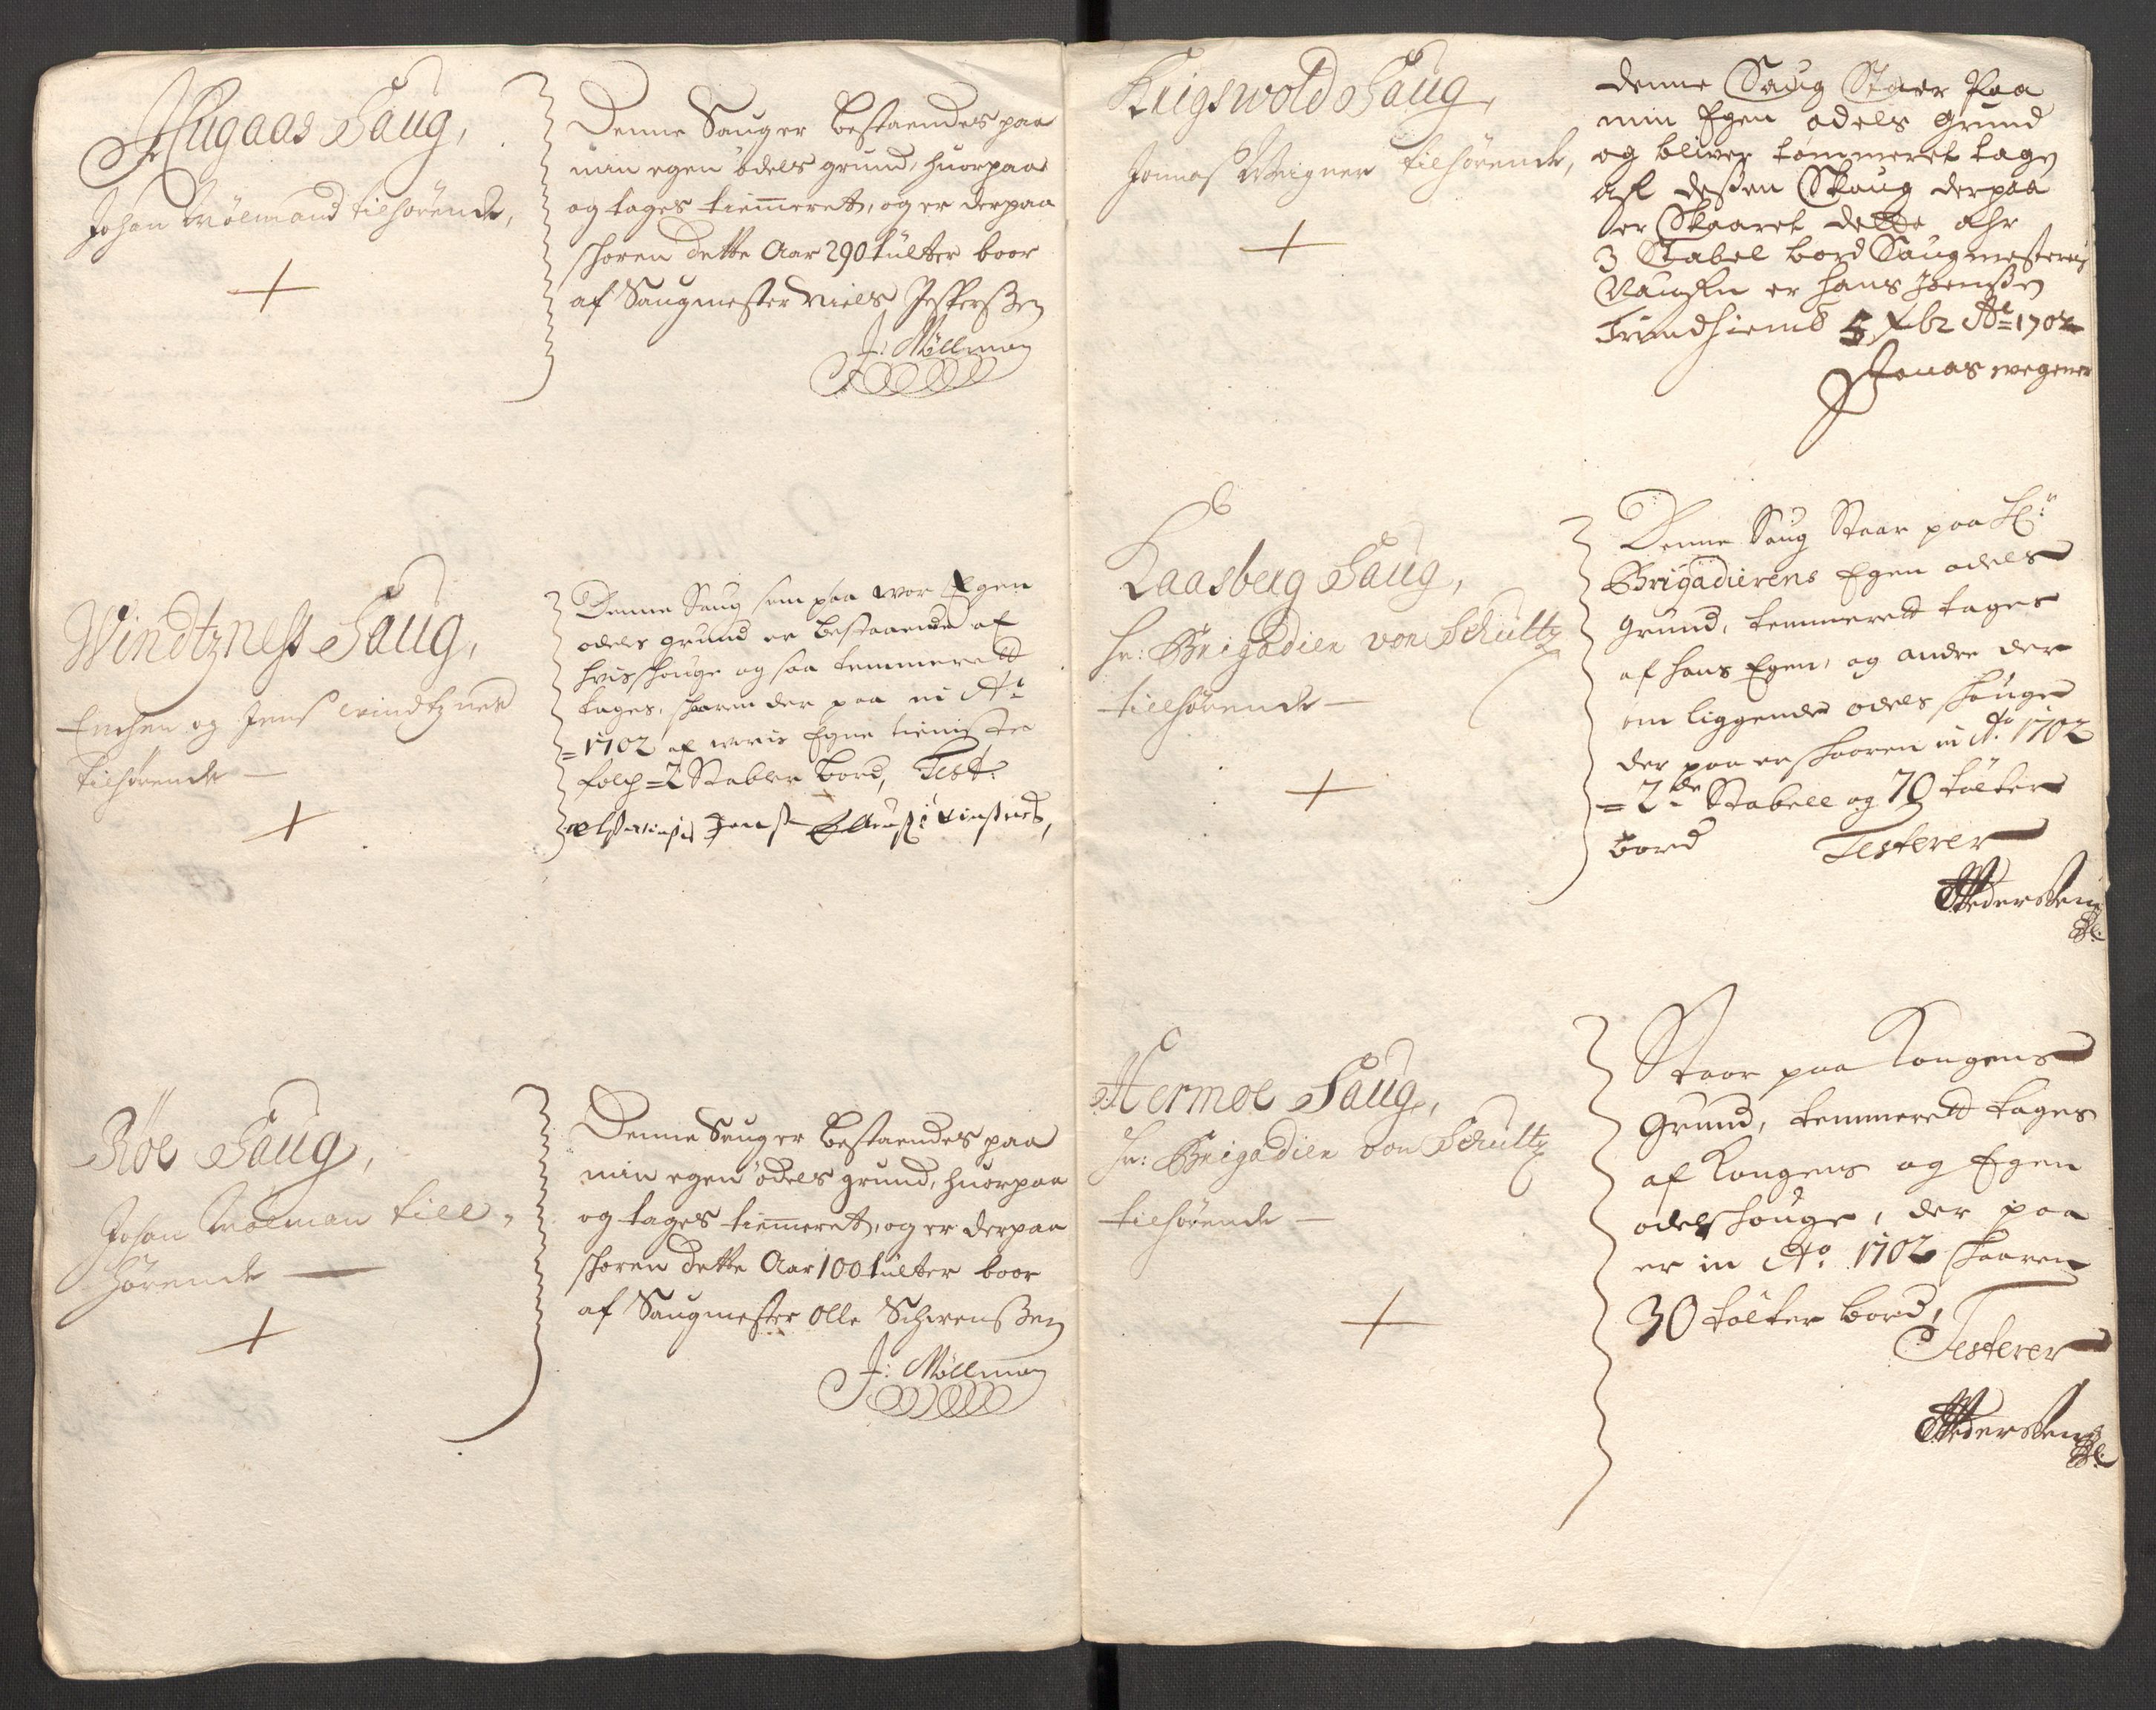 Hugaas Saug,
Johan Mølmand tilhørende,
Denne Saug er bestaendes paa
min egen odels grund, huorpaa
og tages tiemmeret, og er derpaa
skoren dette Aar 290 tülter boor
af Saugmester Niels Jespersen
J: Möllman
Windtzness Saug,
og Jens Windtznes
tilhørende
Denne Saug som paa wor Egen
odels grund er bestaaende af
skouge og saa temmerett
tages, skaaren der paa in Ao
1702 af woris Egne tienniste
folch = 2 Stabler bord, Test:
Röe Saug,
Johan Mölman till
hørende
Denne Saug er bestaendes paa
min egen odels grund, huorpaa
og tages tiemmeret, og er derpaa
skoren dette Aar 100 tülter boor
af Saugmester Olle
J: Möllman
Krigswold Saug,
Jonnas Weigner tilhørende,
denne Saug Staer Paa
min Egen odels grund
og bliver tømmeret tagen
af dessen Skaug derpaa
er Skaaret dette ahr
3 Stabel bord Saugmesterens
Naufn er Hans Joenssen
Trundhiemb 5 Xbr Ao 1702
Jonas wegener
Kaasberg Saug,
Hr: Brigadier von Schultz
tilhørende
Denne Saug Staar paa Hr:
Brigadierens Egen odels
Grund, temmerett tages
af hans Egen, og andre der
om liggende odels skouge
der paa er skaaren in Ao. 1702
= 2de Stabell og 70 tölter
bord Testerer
Pedersen
Hermoe Saug,
Hr: Brigadier von Schultz
tilhørende
Staar paa Kongens
Grund, temmerett tages
af Kongens og Egen
odelsskouge, der paa
er in Ao. 1702 skaaren
30 tölter bord,
Testerer
Pedersen